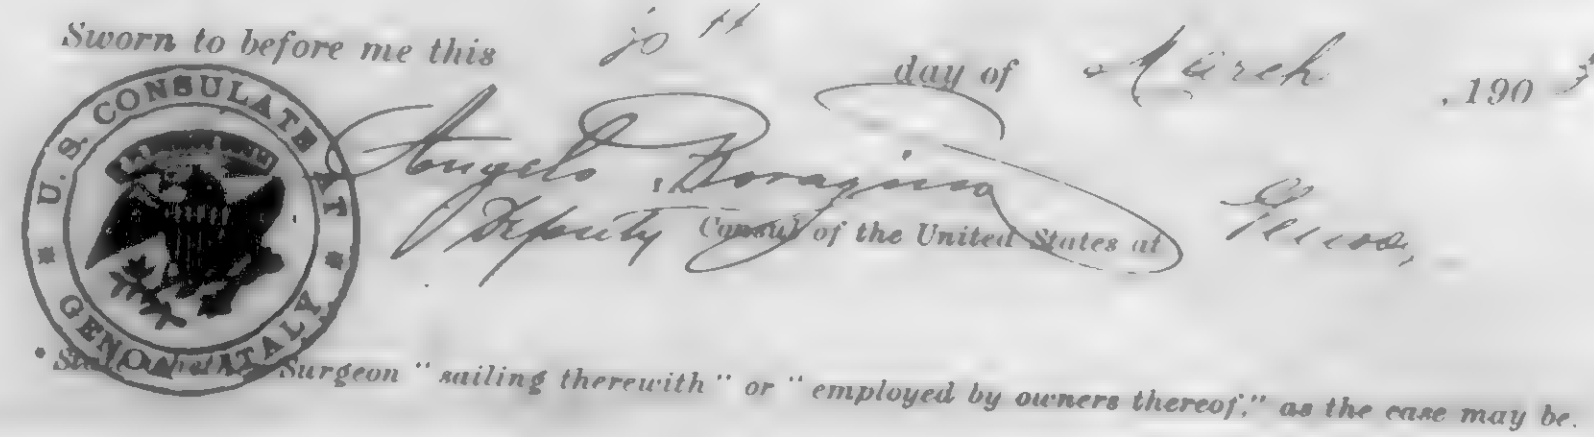 Sworn to before me this day of March, 190
U. S. CONSULATE AT
GENOA ITALY
Angelo Boragino
Deputy Consul of the United States at Genoa,
* State whether Surgeon "sailing therewith" or "employed by owners thereof," as the case may be.